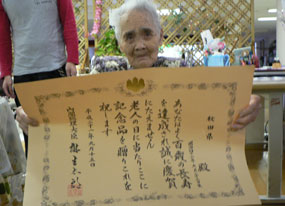 秋田県
殿
あなたはよく百歳の長寿
を達成され誠に慶賀
にたえません
老人の日に当たりここに
記念品を贈りこれを
祝します
平成十一年九月十五日
内閣総理大臣